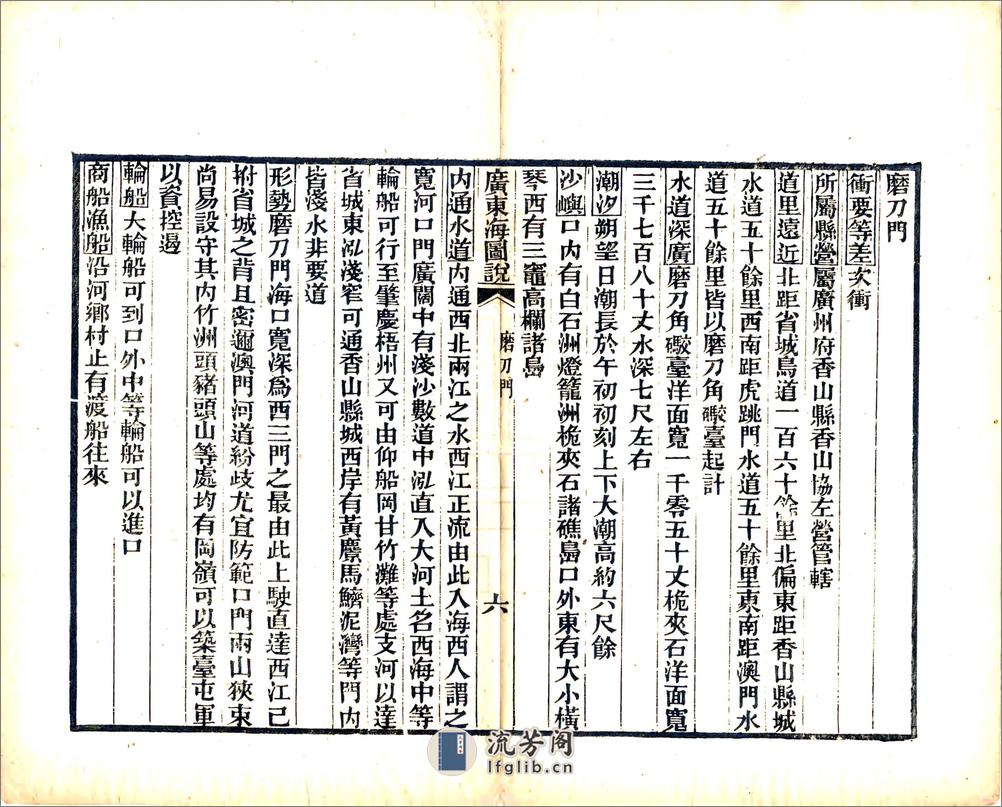 磨刀門
衝要等差次衝
所屬縣營屬廣州府香山縣香山協左營管轄
道里遠近北距省城鳥道一百六十餘里北偏東距香山縣城
水道五十餘里西南距虎跳門水道五十餘里東南距澳門水
道五十餘里皆以磨刀角礮臺起計
水道深廣磨刀角礮臺洋面寬一千零五十丈桅夾石洋面寬
三千七百八十丈水深七尺左右
潮汐朔望日潮長於午初初刻上下大潮高約六尺餘
沙嶼口內有白石洲燈籠洲桅夾石諸礁島口外東有大小橫
琴西有三竈高欄諸島
廣東海圖說
磨刀門
六
內通水道內通西北兩江之水西江正流由此入海西人謂之
寬河口門廣闊中有淺沙數道中泓直入大河土名西海中等
輪船可行至肇慶梧州又可由仰船岡甘竹灘等處支河以達
省城東泓淺窄可通香山縣城西岸有黃麖馬鱭泥灣等門內
皆淺水非要道
形勢磨刀門海口寬深爲西三門之最由此上駛直達西江已
拊省城之背且密邇澳門河道紛歧尤宜防範口門兩山狹束
尚易設守其內竹洲頭豬頭山等處均有岡嶺可以築臺屯軍
以資控遏
輪船大輪船可到口外中等輪船可以進口
商船漁船沿河鄉村止有渡船往來
流芳阁
lfglib.cn